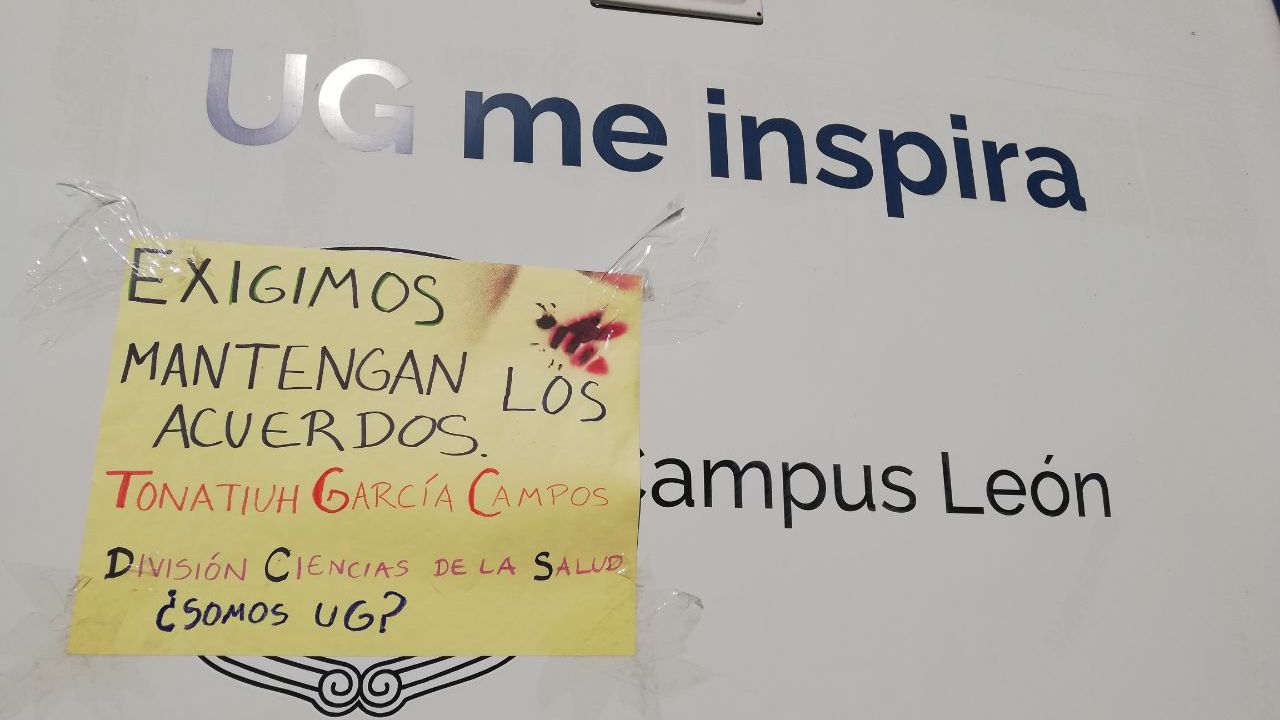 UG me inspira
EXIGIMOS
MANTENGAN LOS
ACUERDOS.
TONATIUH GARCÍA CAMPOS
DIVISIÓN CIENCIAS DE LA SALUD
¿SOMOS UG?
Campus León